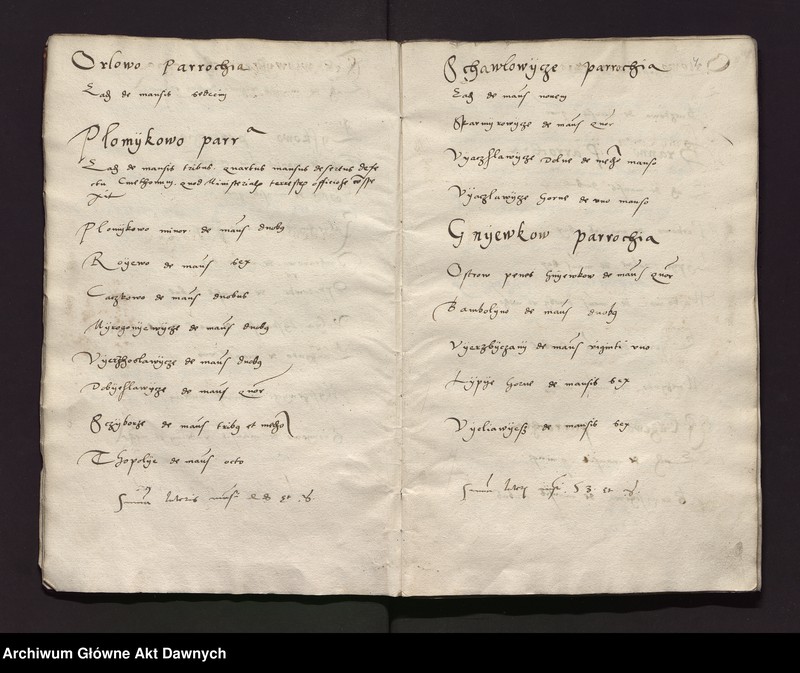 Orlowo Parrochia
Eadem de mansis sedecim
Plomykowo parra
Eadem de mansis tribus, quartus mansus desertus defe
ctu Cmethonum, quod Ministerialis terrestris officiose
Plomykowo minor de mansis duobus
Royewo de mansis sex
Caczkowo de mansis duobus
de mansis duobus
Vyerzchoslawycze de mansis duobus
Dobyeslawycze de mansis quatuor
Sczyborze de mansis tribus et medio
Thopolye de mansis octo
Summa lateris
Schawlowycze parrochia
Eadem de mansis novem
Skarmyrowycze de mansis quatuor
Vyaczslawycze Dolne de medio manso
Vyaczlawycze Gorne de uno manso
Gnyewkow parrochia
Ostrow penes Gnyewkow de mansis quatuor
Bambolyno de mansis duobus
Vyerzbyczany de mansis viginti uno
Lypye Gorne de mansis sex
de mansis sex
Summa lateris
Archiwum Główne Akt Dawnych